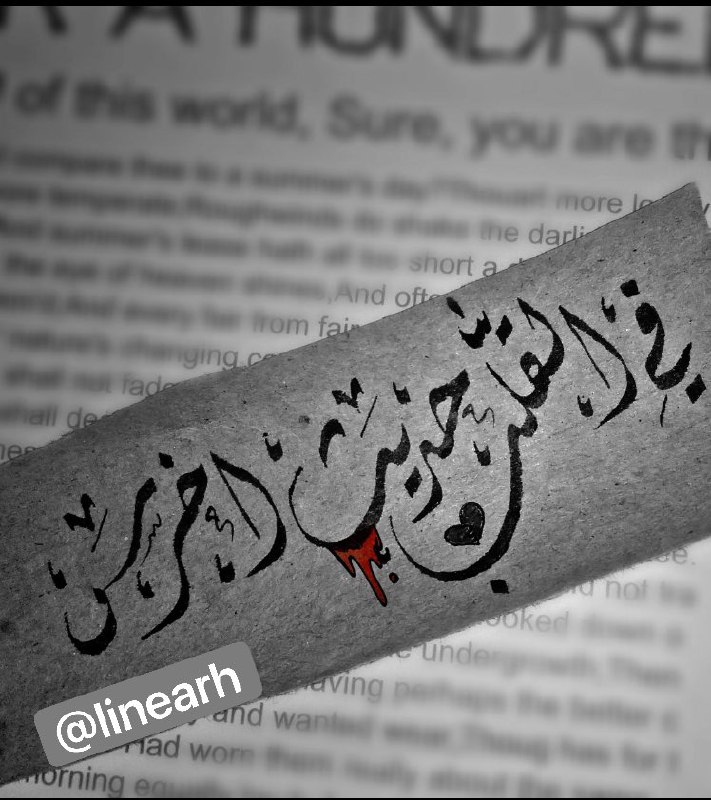 R A HUNDRE
of this world, Sure, you are th
compare thee to a summer's day?Thouart more lo
more temperate.Roughwinds do shake the darli
And summer's lease hath all too short a
the eye of heaven shines,And oft
And every fair from fair
nature's changing co
shall not fade
shall
في القلب حديث اخرس
@linearh
not
looked down
undergrowth,Then
having perhaps the better c
and wanted wear,Though has for t
Had worn them really about the same
morning equally